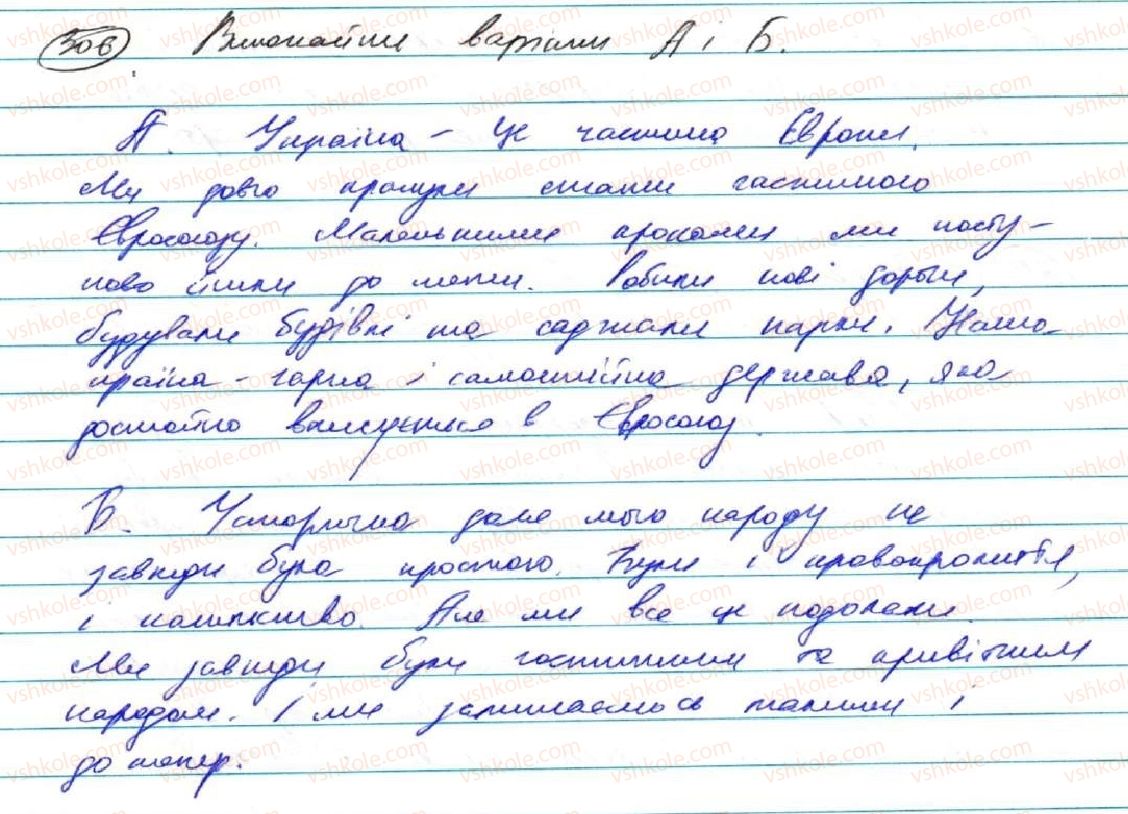 306 Виконайте варіанти А і Б.
А. Україна – це частина Європи.
Ми довго прагнули стати частиною
Євросоюзу. Маленькими кроками ми посту-
пово йшли до мети. Робили нові дороги,
будували будівлі та саджали парки. Наша
країна – гарна і самостійна держава, яка
достатньо вписується в Євросоюз.
Б. Історична доля мого народу не
завжди була простою. Були і кровопролиття,
і кріпацтво. Але ми все це подолали.
Ми завжди були гостинним та привітним
народом. І ми залишаємось такими і
до тепер.